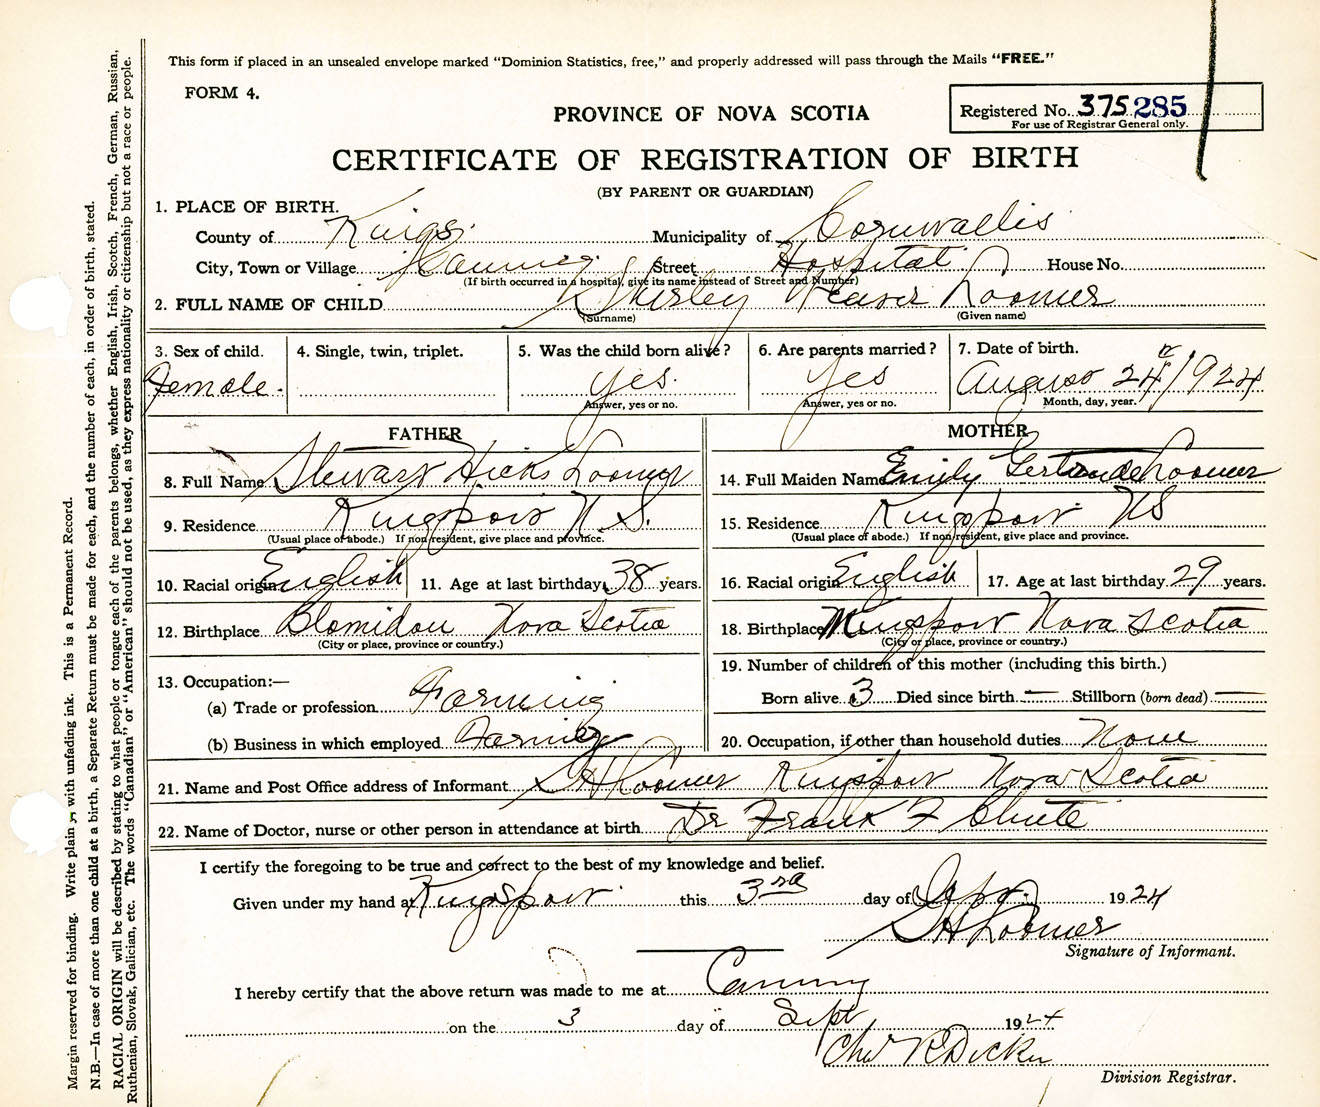 This form if placed in an unsealed envelope marked "Dominion Statistics, free," and properly addressed will pass through the Mails "FREE."
FORM 4.
PROVINCE OF NOVA SCOTIA
Registered No. 375 285
For use of Registrar General only.
CERTIFICATE OF REGISTRATION OF BIRTH
(BY PARENT OR GUARDIAN)
1. PLACE OF BIRTH.
County of Kings Municipality of Cornwallis
City, Town or Village Canning Street Hospital House No.
(If birth occurred in a hospital, give its name instead of Street and Number)
2. FULL NAME OF CHILD Shirley Weaver Loomer
(Surname) (Given name)
3. Sex of child. 4. Single, twin, triplet. 5. Was the child born alive? 6. Are parents married? 7. Date of birth.
Female. yes. yes August 24 1924
Answer, yes or no. Answer, yes or no. Month, day, year.
FATHER MOTHER
8. Full Name Stewart Hicks Loomer 14. Full Maiden Name Emily Gertrude Loomer
9. Residence Kingsport N.S. 15. Residence Kingsport NS
(Usual place of abode.) If non-resident, give place and province. (Usual place of abode.) If non-resident, give place and province.
10. Racial origin English 11. Age at last birthday 38 years. 16. Racial origin English 17. Age at last birthday 29 years.
12. Birthplace Blomidon Nova Scotia 18. Birthplace Kingsport Nova Scotia
(City or place, province or country.) (City or place, province or country.)
13. Occupation:— 19. Number of children of this mother (including this birth.)
(a) Trade or profession Farming Born alive 3 Died since birth — Stillborn (born dead) —
(b) Business in which employed Farming 20. Occupation, if other than household duties None
21. Name and Post Office address of Informant S H Loomer Kingsport Nova Scotia
22. Name of Doctor, nurse or other person in attendance at birth Dr Frank F Chute
I certify the foregoing to be true and correct to the best of my knowledge and belief.
Given under my hand at Kingsport this 3rd day of Sept. 1924
S H Loomer
Signature of Informant.
I hereby certify that the above return was made to me at Canning
on the 3 day of Sept 1924
Chas R Dickie
Division Registrar.
Margin reserved for binding. Write plain y with unfading ink. This is a Permanent Record.
N.B.—In case of more than one child at a birth, a Separate Return must be made for each, and the number of each, in order of birth, stated.
RACIAL ORIGIN will be described by stating to what people or tongue each of the parents belongs, whether English, Irish, Scotch, French, German, Russian,
Ruthenian, Slovak, Galician, etc. The words "Canadian" or "American" should not be used, as they express nationality or citizenship but not a race or people.